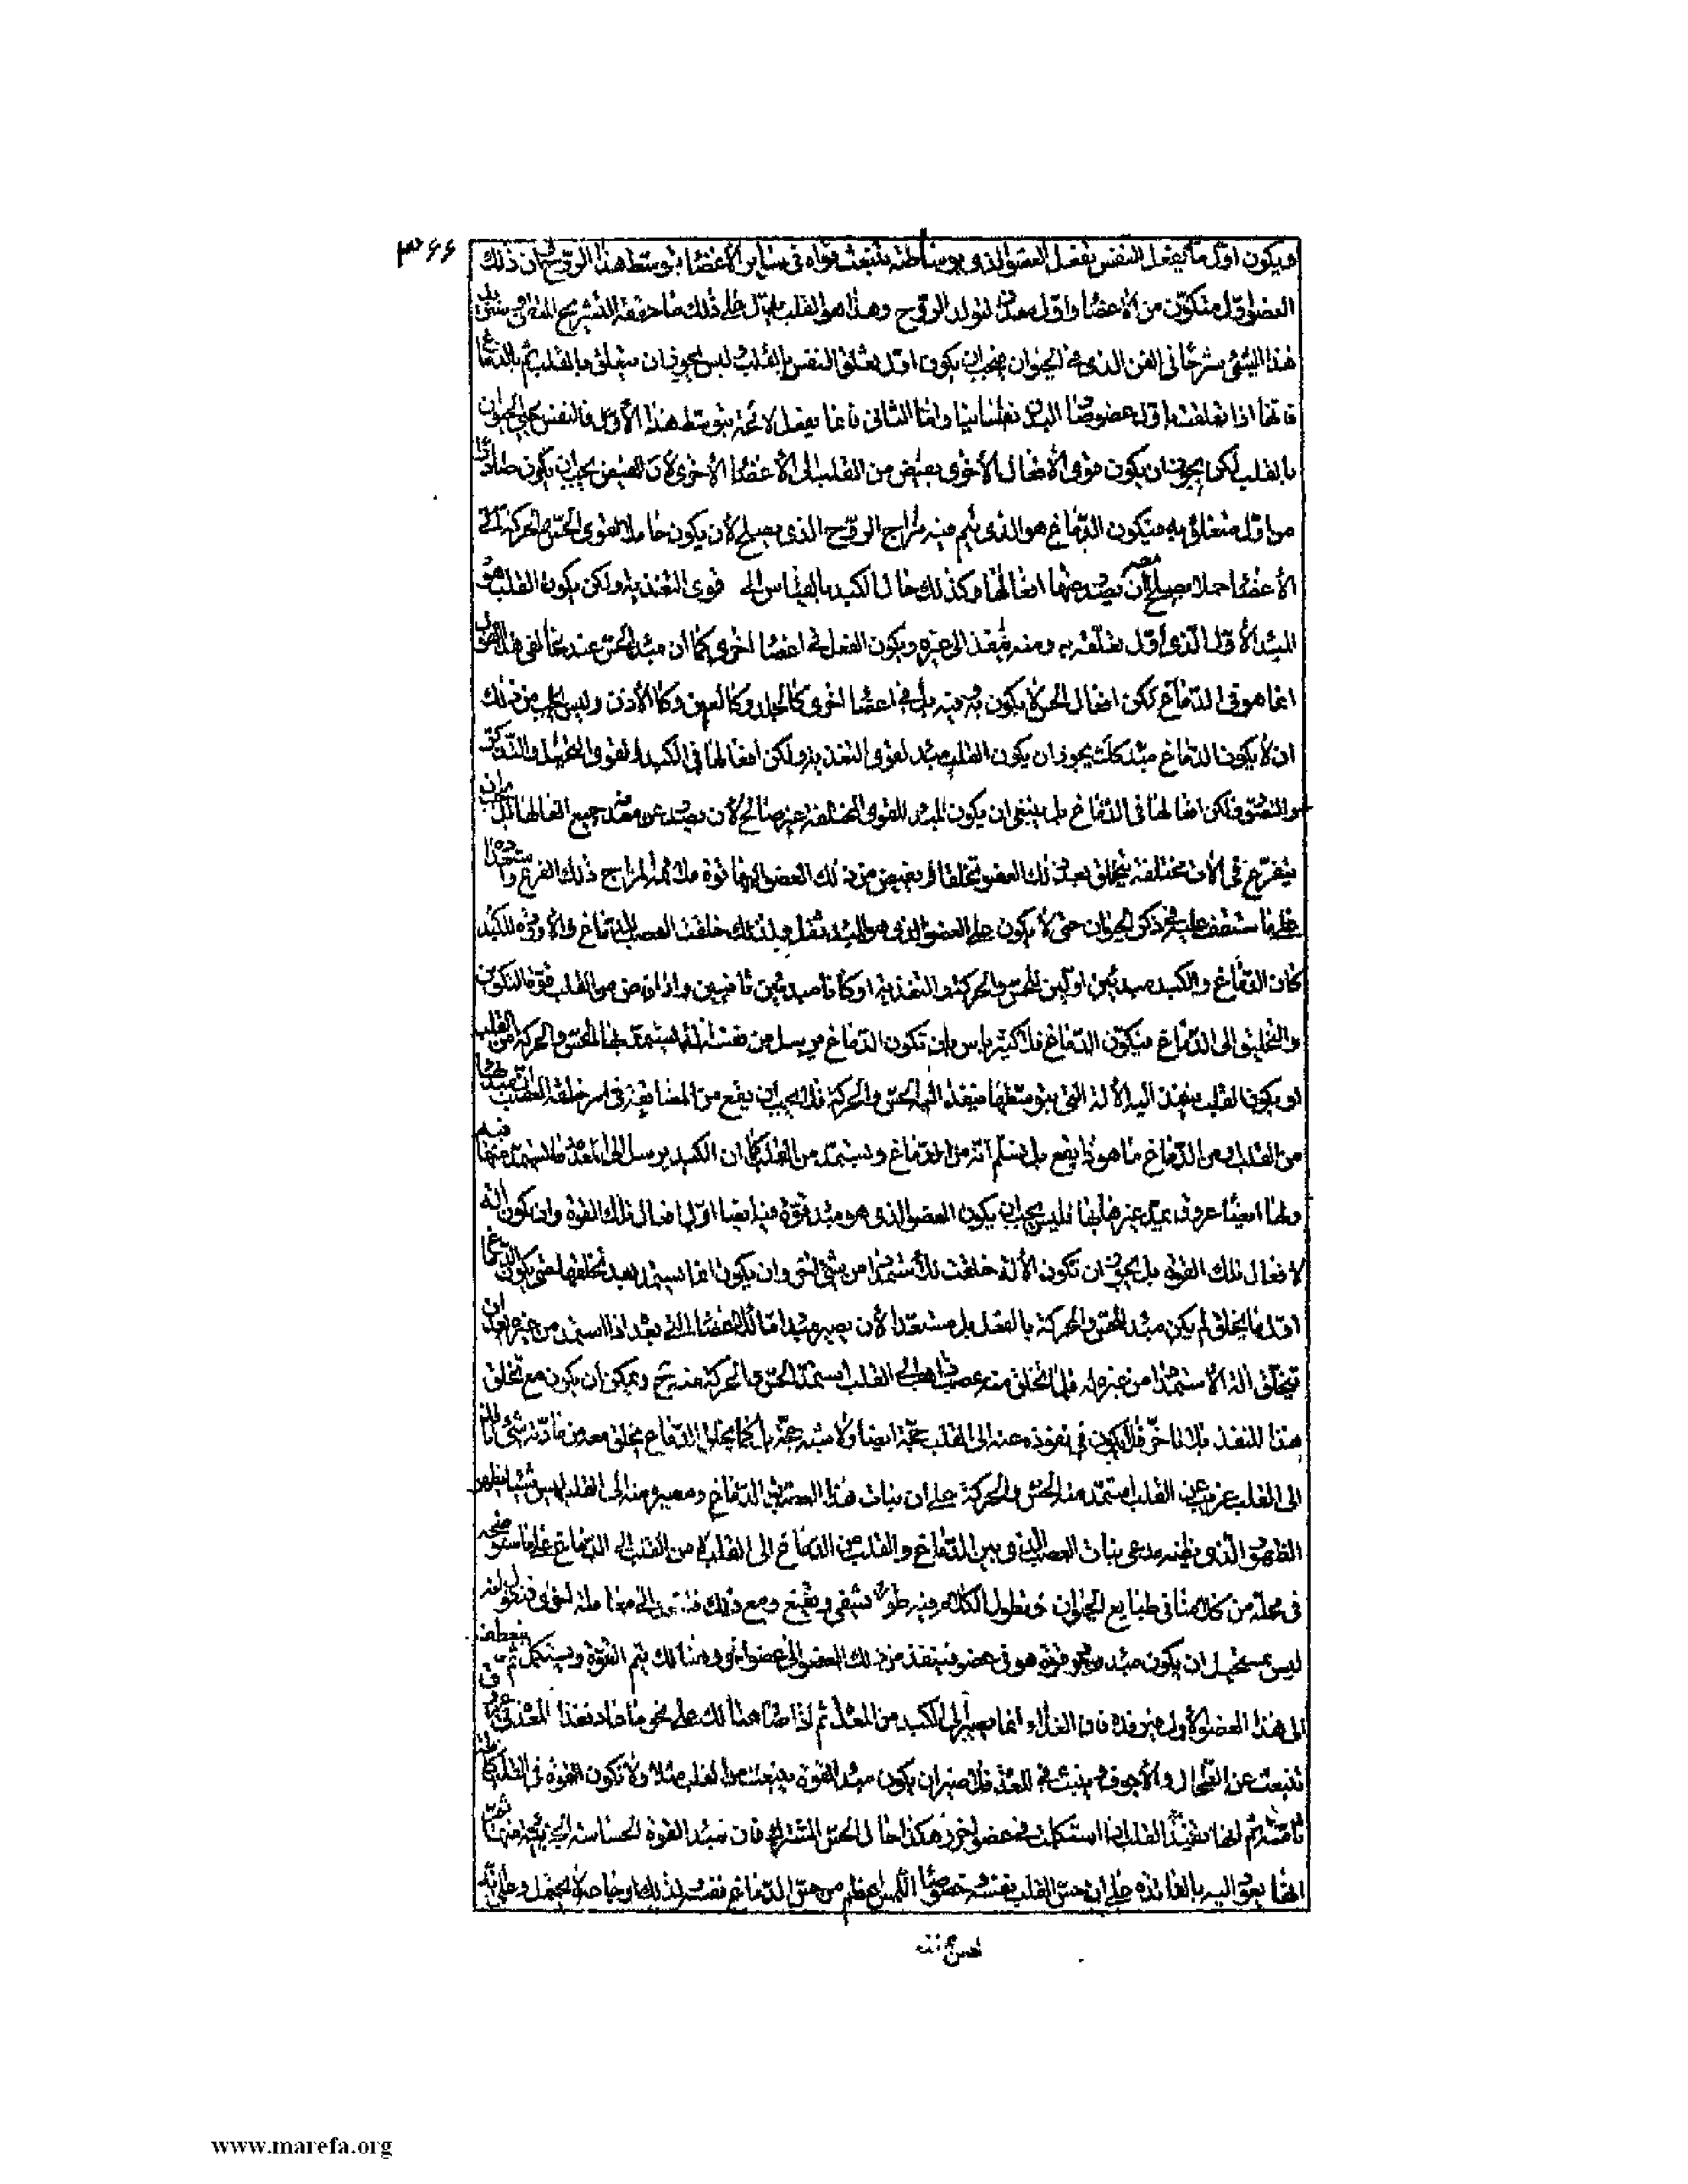 ٣٦٦
ويكون اول ما تفعل النفس تفعل العضو الذى بوساطته تنبعث قواه فى ساير الأعضا بتوسط هذا الروح وان ذلك
العضو اول متكون من الأعضا واول معدن لتولد الروح وهذا هو القلب يدل على ذلك ما حققه التشريح المتقن
هذا المعنى شرحا فى الفن الذى فى الحيوان فيجب ان يكون اول تعلق النفس بالقلب وليس يجوز ان يتعلق بالقلب ثم بالدماغ
فانها اذا تعلقت باول عضو صار البدن نفسانيا واما الثانى فانما يفعل لا محة بتوسط هذا الأول فالنفس يحيى الحيوان
بالقلب لكن يجوز ان يكون قوى الأفعال الأخرى يفيض من القلب الى الأعضا الأخرى لان الفيض يجب ان يكون صادرا
من اول متعلق به فيكون الدماغ هو الذى يتم فيه مزاج الروح الذى يصلح لأن يكون حاملا لقوى الحس والحركة الى
الأعضا حملا يصلح ان يصدر معه عنها افعالها وكذلك حال الكبد بالقياس الى قوى التغذية ولكن يكون القلب هو
المبدأ الأول الذى اول تعلقه به ومنه ينفذ الى غيره ويكون الفعل فى اعضا اخرى كما ان مبدأ الحس عند مخالفى هذا القول
انما هو فى الدماغ لكن افعال الحس لا يكون به وفيه بل فى اعضا اخرى كالجلد وكالعين وكالأذن وليس يجب من ذلك
ان لا يكون الدماغ مبدأ كك يجوز ان يكون القلب مبدأ لقوى التغذية ولكن افعالها فى الكبد ولقوى التخيل والتذكر
والتصور ولكن افعالها فى الدماغ بل ينبغى ان يكون المبدأ للقوى المختلفة غير صالح لأن يصدر عن معدنه جميع افعالها بل يجب ان
يتفرع فى آلات مختلفة يتخلق بعد ذلك العضو تخلقا او يفيض من ذلك العضو اليها قوة ملائمة لمزاج ذلك الفرع واستعداده
على ما ستقف عليه فى ذكر الحيوان حتى لا يكون على العضو الذى هو المبدأ ثقل ولذلك خلقت العصب للدماغ والأوردة للكبد
كان الدماغ والكبد مبدئين اولين للحس والحركة والتغذية او كانا مبدئين ثانيين واذا فاض من القلب قوة التكوين
والتخليق الى الدماغ فيكون الدماغ فلا كثير باس بان تكون الدماغ يرسل من نفسه آلة يستمد بها الحس والحركة من القلب
او يكون القلب ينفذ اليه الألة التى بتوسطها ينفذ اليه الحس والحركة فلا يجب ان يقع من المضايقة فى امر خلقة العصب ان مبدأها
من القلب او من الدماغ ما هو ذا يقع بل نسلم انه من الدماغ ويستمد من القلب كما ان الكبد يرسل الى المعدة ما يستمد منها فيه
ولها ايضا عروق يمد غيرها بها فليس يجب ان يكون العضو الذى هو مبدأ قوة فيه ايضا اول افعال تلك القوة وان يكون آلة
لافعال تلك القوة بل يجوز ان تكون الألة خلقت للاستمداد من شئ اخر وان يكون انما يستمد بعد تخلقها حتى يكون الدماغ
اول ما يخلق لم يكن مبدأ للحس والحركة بالفعل بل مستعدا لأن يصير مبدأ ما للأعضا التى بعده اذا استمد من غيره بعد ان
يتخلق آلة الاستمداد من غيره له فلما تخلق منه عصب ذاهب الى القلب استمد الحس والحركة منه ح ويمكن ان يكون مع تخلق
هذا المنفذ بلا تاخر فلا يكون فى نفوذه عنه الى القلب حجة ايضا ولا شبه حجة بل كما يخلق الدماغ يخلق معه من مادته شئ نافذ
الى القلب غريب عن القلب استمد منه الحس والحركة على ان نبات هذا العصب من الدماغ ومصيره منه الى القلب ليس شيئا يظهر
الظهور الذى يظنه مدعى نبات العصب الذى بين الدماغ والقلب من الدماغ الى القلب لا من القلب الى الدماغ على ما سنوضحه
فى محله من كلامنا فى طبايع الحيوان ونطول الكلام فيه طولا يشفى ويقنع ومع ذلك فلنعد الى معاملة اخرى فنقول انه
ليس بمستحيل ان يكون مبدأ وجود قوة هو فى عضو فينفذ من ذلك العضو الى عضو اخر وهنالك يتم القوة ويستكمل ثم ينعطف
الى هذا العضو الأول فيرفده فان الغذاء انما يصير الى الكبد من المعدة ثم اذا صار هنالك على نحو ما عاد يغذو المعدة فى عروق
تنبعث عن الطحال والأجوف ينبث فى المعدة فلا ضير ان يكون مبدأ القوة ينبعث من القلب مثلا ولا تكون القوة فى القلب كاملة
تامة ثم انها تفيد القلب اذا استكملت فى عضو اخر وهكذا حال الحس المشترك فان مبدأ القوة الحساسة الجزئية منها ثم
انها يعود اليه بالفائدة على ان حس القلب بنفسه خصوصا اللمس اعظم من حس الدماغ نفسه ولذلك اوجاعه لا يحتمل وعلى انه